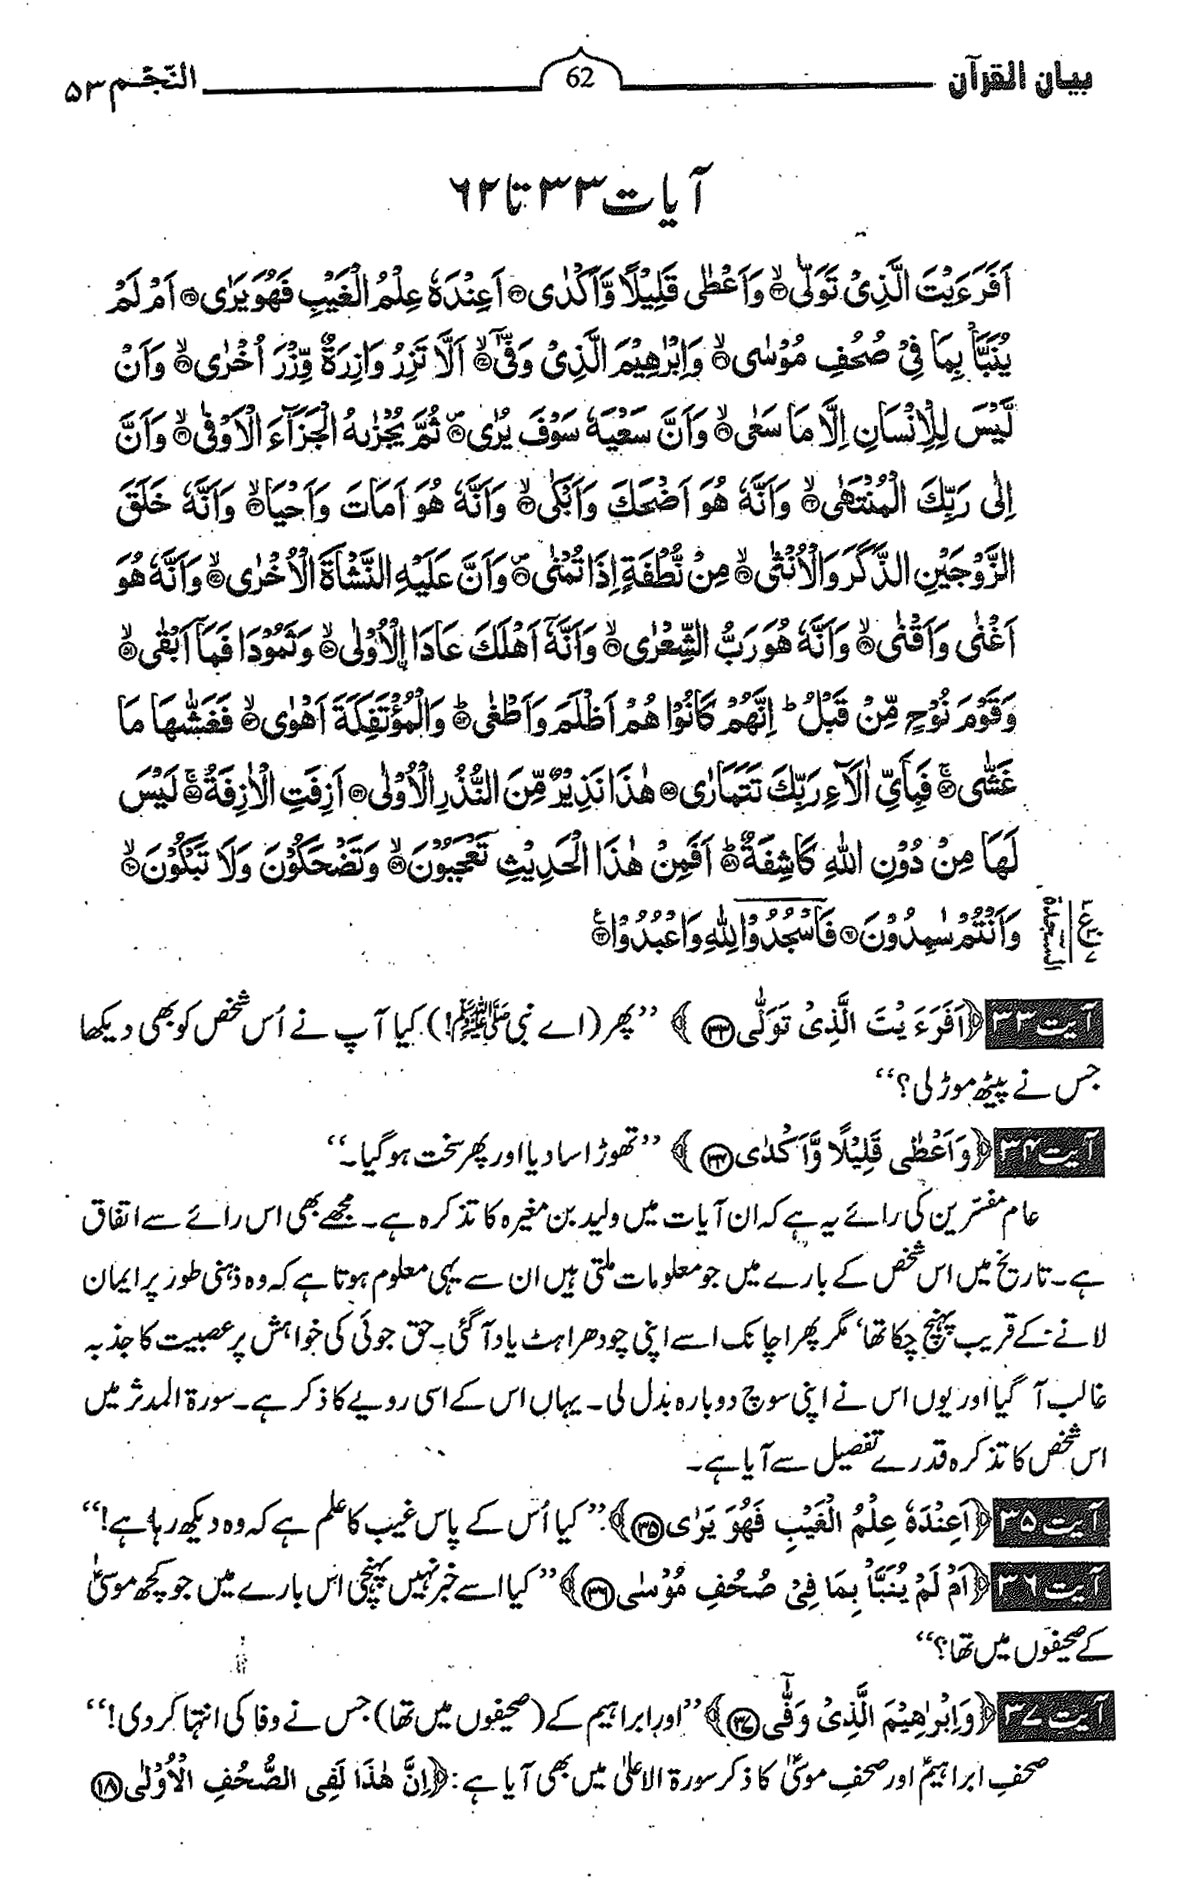 بیان القرآن 62 النّجْم ۵۳
آیات ۳۳ تا ۶۲
اَفَرَءَیْتَ الَّذِیْ تَوَلّٰی ﴿۳۳﴾ وَاَعْطٰی قَلِیْلًا وَّاَكْدٰی ﴿۳۴﴾ اَعِنْدَهٗ عِلْمُ الْغَیْبِ فَهُوَ یَرٰی ﴿۳۵﴾ اَمْ لَمْ
یُنَبَّاْ بِمَا فِیْ صُحُفِ مُوْسٰی ﴿۳۶﴾ وَاِبْرٰهِیْمَ الَّذِیْ وَفّٰۤی ﴿۳۷﴾ اَلَّا تَزِرُ وَازِرَةٌ وِّزْرَ اُخْرٰی ﴿۳۸﴾ وَاَنْ
لَّیْسَ لِلْاِنْسَانِ اِلَّا مَا سَعٰی ﴿۳۹﴾ وَاَنَّ سَعْیَهٗ سَوْفَ یُرٰی ﴿۴۰﴾ ثُمَّ یُجْزٰىهُ الْجَزَآءَ الْاَوْفٰی ﴿۴۱﴾ وَاَنَّ
اِلٰی رَبِّكَ الْمُنْتَهٰی ﴿۴۲﴾ وَاَنَّهٗ هُوَ اَضْحَكَ وَاَبْكٰی ﴿۴۳﴾ وَاَنَّهٗ هُوَ اَمَاتَ وَاَحْیَا ﴿۴۴﴾ وَاَنَّهٗ خَلَقَ
الزَّوْجَیْنِ الذَّكَرَ وَالْاُنْثٰی ﴿۴۵﴾ مِنْ نُّطْفَةٍ اِذَا تُمْنٰی ﴿۴۶﴾ وَاَنَّ عَلَیْهِ النَّشْاَةَ الْاُخْرٰی ﴿۴۷﴾ وَاَنَّهٗ هُوَ
اَغْنٰی وَاَقْنٰی ﴿۴۸﴾ وَاَنَّهٗ هُوَ رَبُّ الشِّعْرٰی ﴿۴۹﴾ وَاَنَّهٗۤ اَهْلَكَ عَادَا اِ۟لْاُوْلٰی ﴿۵۰﴾ وَثَمُوْدَا فَمَاۤ اَبْقٰی ﴿۵۱﴾
وَقَوْمَ نُوْحٍ مِّنْ قَبْلُ ؕ اِنَّهُمْ كَانُوْا هُمْ اَظْلَمَ وَاَطْغٰی ﴿۵۲﴾ؕ وَالْمُؤْتَفِكَةَ اَهْوٰی ﴿۵۳﴾ فَغَشّٰىهَا مَا
غَشّٰی ﴿۵۴﴾ فَبِاَیِّ اٰلَآءِ رَبِّكَ تَتَمَارٰی ﴿۵۵﴾ هٰذَا نَذِیْرٌ مِّنَ النُّذُرِ الْاُوْلٰی ﴿۵۶﴾ اَزِفَتِ الْاٰزِفَةُ ﴿۵۷﴾ لَیْسَ
لَهَا مِنْ دُوْنِ اللّٰهِ كَاشِفَةٌ ﴿۵۸﴾ؕ اَفَمِنْ هٰذَا الْحَدِیْثِ تَعْجَبُوْنَ ﴿۵۹﴾ وَتَضْحَكُوْنَ وَلَا تَبْكُوْنَ ﴿۶۰﴾
وَاَنْتُمْ سٰمِدُوْنَ ﴿۶۱﴾ فَاسْجُدُوْا لِلّٰهِ وَاعْبُدُوْا ﴿۶۲﴾ السجدة
آیت ۳۳ ﴿اَفَرَءَیْتَ الَّذِیْ تَوَلّٰی ﴿۳۳﴾﴾ ’’پھر (اے نبی ﷺ!) کیا آپ نے اُس شخص کو بھی دیکھا
جس نے پیٹھ موڑ لی؟‘‘
آیت ۳۴ ﴿وَاَعْطٰی قَلِیْلًا وَّاَكْدٰی ﴿۳۴﴾﴾ ’’تھوڑا سا دیا اور پھر سخت ہو گیا۔‘‘
عام مفسّرین کی رائے یہ ہے کہ ان آیات میں ولید بن مغیرہ کا تذکرہ ہے۔ مجھے بھی اس رائے سے اتفاق
ہے۔ تاریخ میں اس شخص کے بارے میں جو معلومات ملتی ہیں ان سے یہی معلوم ہوتا ہے کہ وہ ذہنی طور پر ایمان
لانے کے قریب پہنچ چکا تھا‘ مگر پھر اچانک اسے اپنی چودھراہٹ یاد آ گئی۔ حق جوئی کی خواہش پر عصبیت کا جذبہ
غالب آ گیا اور یوں اس نے اپنی سوچ دوبارہ بدل لی۔ یہاں اس کے اسی رویے کا ذکر ہے۔ سورۃ المدثر میں
اس شخص کا تذکرہ قدرے تفصیل سے آیا ہے۔
آیت ۳۵ ﴿اَعِنْدَهٗ عِلْمُ الْغَیْبِ فَهُوَ یَرٰی ﴿۳۵﴾﴾ ’’کیا اُس کے پاس غیب کا علم ہے کہ وہ دیکھ رہا ہے!‘‘
آیت ۳۶ ﴿اَمْ لَمْ یُنَبَّاْ بِمَا فِیْ صُحُفِ مُوْسٰی ﴿۳۶﴾﴾ ’’کیا اسے خبر نہیں پہنچی اس بارے میں جو کچھ موسیٰؑ
کے صحیفوں میں تھا؟‘‘
آیت ۳۷ ﴿وَاِبْرٰهِیْمَ الَّذِیْ وَفّٰۤی ﴿۳۷﴾﴾ ’’اور ابراہیم کے (صحیفوں میں تھا) جس نے وفا کی انتہا کر دی!‘‘
صحفِ ابراہیمؑ اور صحفِ موسیٰؑ کا ذکر سورۃ الاعلیٰ میں بھی آیا ہے: ﴿اِنَّ هٰذَا لَفِی الصُّحُفِ الْاُوْلٰی ﴿۱۸﴾